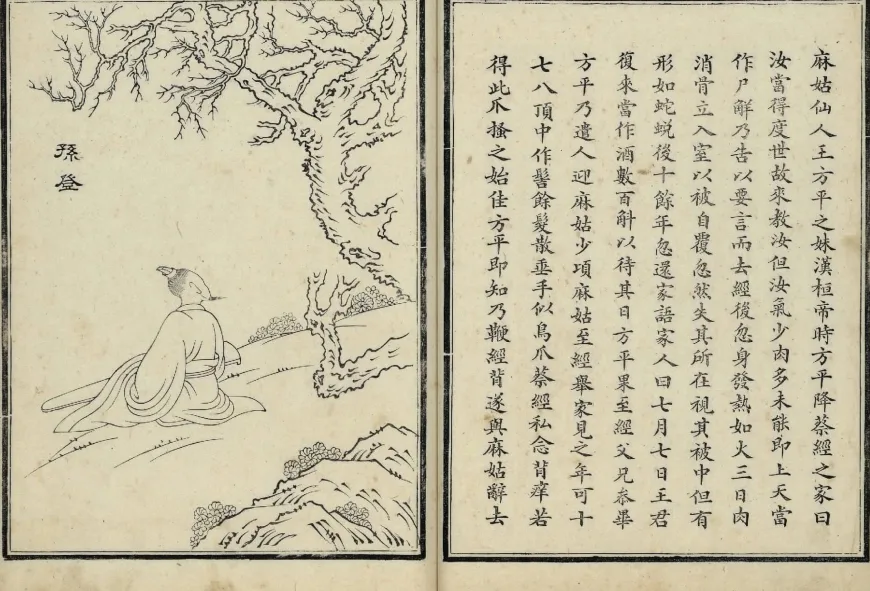 麻姑仙人王方平之妹漢桓帝時方平降蔡經之家曰
汝當得度世故來教汝但汝氣少肉多未能即上天當
作尸解乃告以要言而去經後忽身發熱如火三日肉
消骨立入室以被自覆忽然失其所在視其被中但有
形如蛇蛻後十餘年忽還家語家人曰七月七日王君
復來當作酒數百斛以待其日方平果至經父兄叅畢
方平乃遣人迎麻姑少項麻姑至經舉家見之年可十
七八頂中作髻餘髮散垂手似鳥爪蔡經私念背癢若
得此爪搔之始佳方平即知乃鞭經背遂與麻姑辭去
孫登